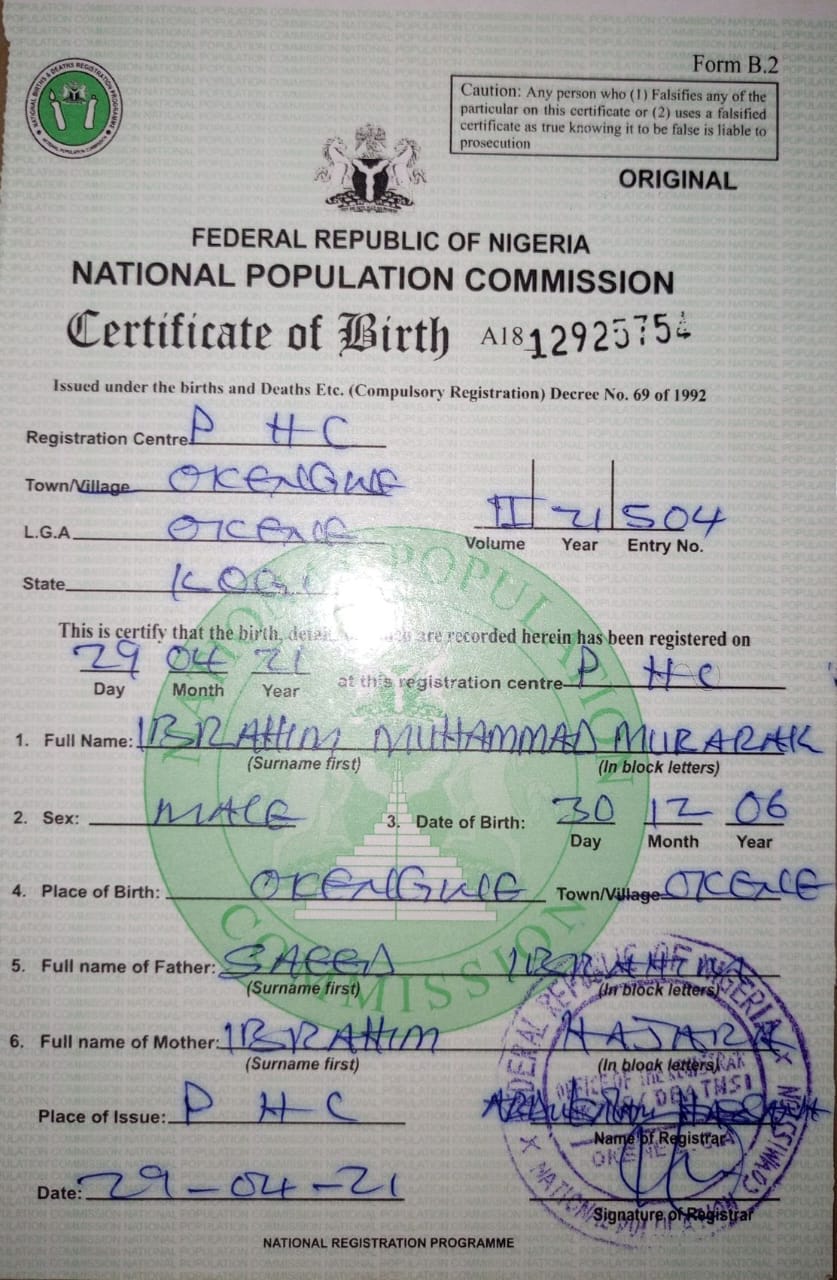 Form B.2
Caution: Any person who (1) Falsifies any of the
particular on this certificate or (2) uses a falsified
certificate as true knowing it to be false is liable to
prosecution
ORIGINAL
FEDERAL REPUBLIC OF NIGERIA
NATIONAL POPULATION COMMISSION
Certificate of Birth A18 12925754
Issued under the births and Deaths Etc. (Compulsory Registration) Decree No. 69 of 1992
Registration Centre P H C
Town/Village OKENGWE
L.G.A OKENE
II 21 504
Volume Year Entry No.
State KOGI
This is certify that the birth, are recorded herein has been registered on
29 04 21 at this registration centre P H C
Day Month Year
1. Full Name: IBRAHIM MUHAMMAD MUBARAK
(Surname first) (In block letters)
2. Sex: MALE 3. Date of Birth: 30 12 06
Day Month Year
4. Place of Birth: OKENGWE Town/Village OKENE
5. Full name of Father: SAEED IBRAHIM
(Surname first) (In block letters)
6. Full name of Mother: IBRAHIM HAJARA
(Surname first) (In block letters)
Place of Issue: P H C
Name of Registrar
Date: 29-04-21
Signature of Registrar
NATIONAL REGISTRATION PROGRAMME